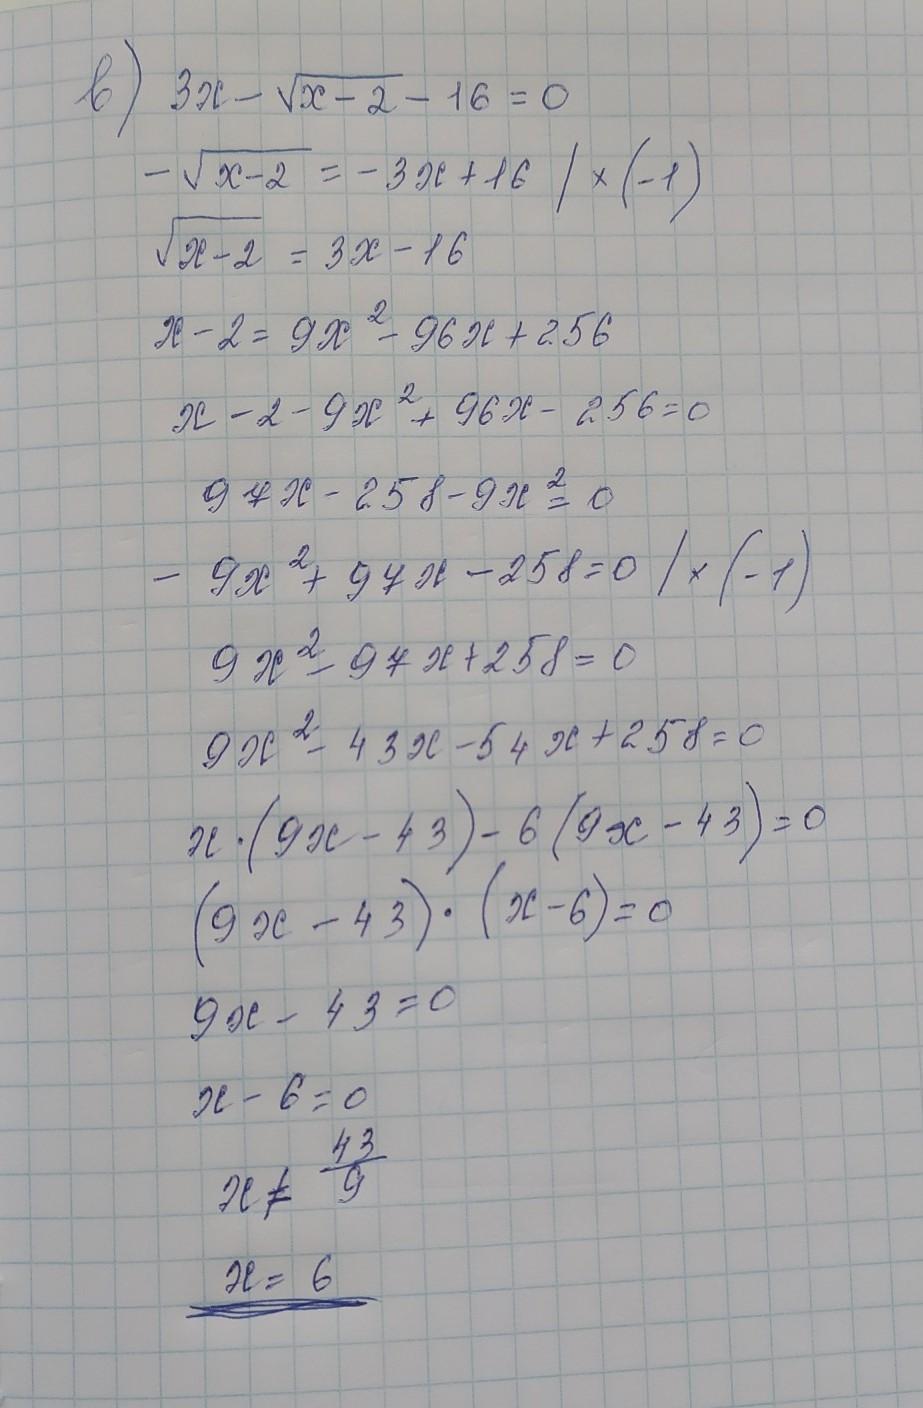 в) 3x - √(x-2) - 16 = 0
- √(x-2) = -3x + 16 / × (-1)
√(x-2) = 3x - 16
x - 2 = 9x² - 96x + 256
x - 2 - 9x² + 96x - 256 = 0
97x - 258 - 9x² = 0
- 9x² + 97x - 258 = 0 / × (-1)
9x² - 97x + 258 = 0
9x² - 43x - 54x + 258 = 0
x · (9x - 43) - 6 (9x - 43) = 0
(9x - 43) · (x - 6) = 0
9x - 43 = 0
x - 6 = 0
x ≠ 43/9
x = 6